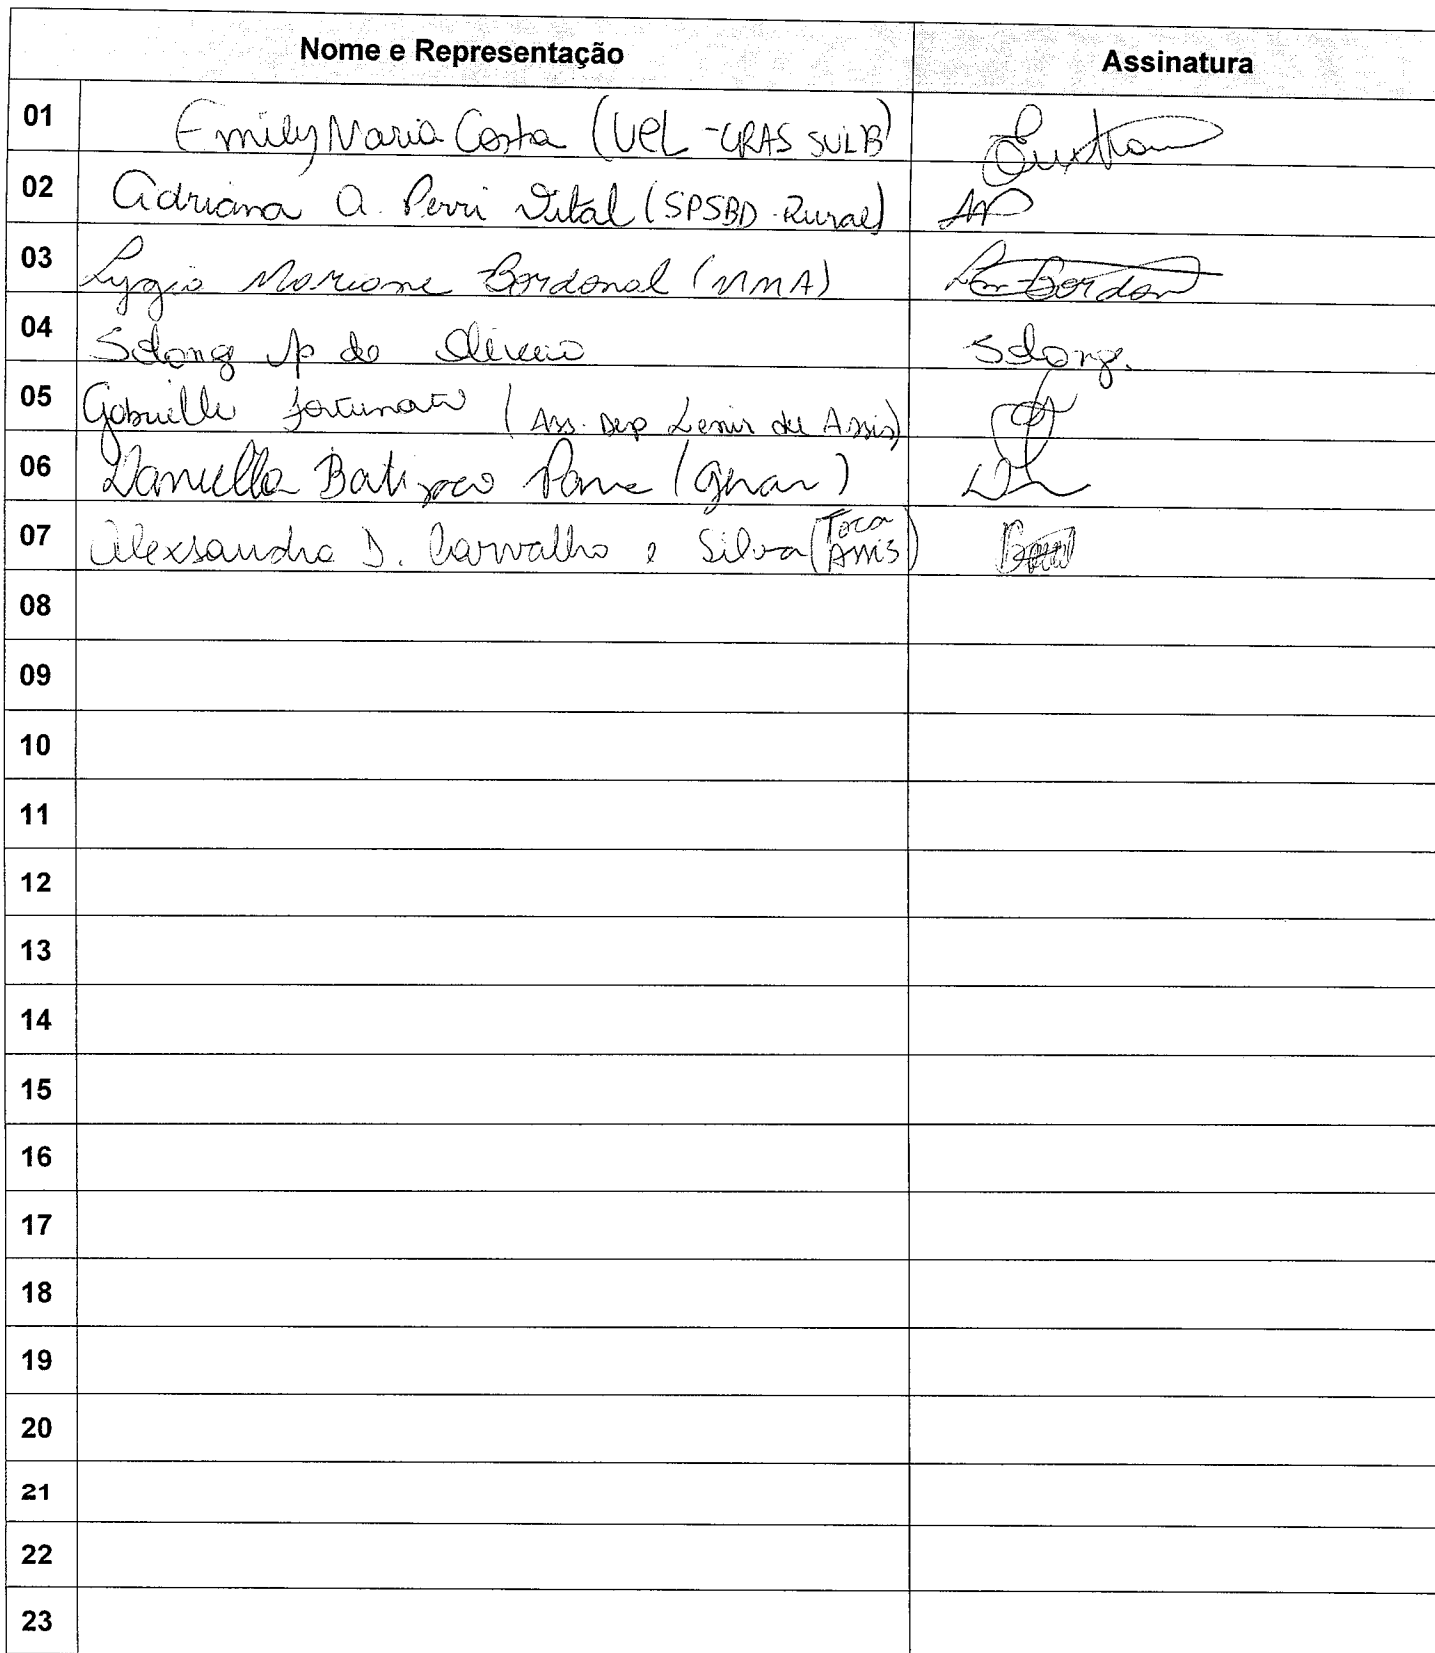 Nome e Representação Assinatura
01 Emily Maria Costa (UEL - CRAS SUL B)
02 Adriana A. Perri Vital (SPSBD - Rural) AP
03 Lygia Mariane Bordonal (MMA) Bordon
04 Solange Ap de Oliveira Solange.
05 Gabrielle Fortunato (Ass. Dep Lenir de Assis)
06 Danielle Batizoco
07 Alexsandra D. Carvalho e Silva (Toca Assis)
08
09
10
11
12
13
14
15
16
17
18
19
20
21
22
23